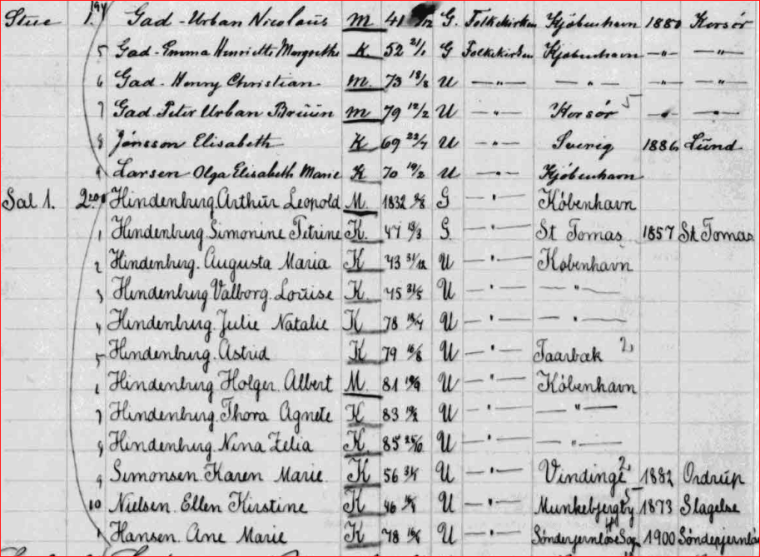 Stue 1. 194 Gad - Urban Nicolaus M 41 G. Folkekirken Kjöbenhavn 1880 Korsör
5 Gad - Emma Henriette Margrethe K 52 21/1 G Folkekirken Kjöbenhavn -"- -"-
6 Gad - Henry Christian m. 73 18/8 U -"- -"- -"- -"-
7 Gad Peter Urban Bruün m 79 12/2 U -"- Korsör 5 -"- -"-
8 Jönsson Elisabeth K 69 22/7 U -"- Sverig 1886 Lund
9 Larsen Olga Elisabeth Marie K 70 19/2 U -"- Kjöbenhavn
Sal 1. 2 Hindenburg. Arthur Leopold M. 1832 G -"- Köbenhavn
1 Hindenburg. Simonine Petrine K. 47 G. -"- St Tomas 1857 St Tomas
2 Hindenburg. Augusta Maria K 43 31/12 U -"- Köbenhavn
3 Hindenburg Valborg. Louise K 45 31/5 U -"- -"-
4 Hindenburg. Julie Natalie K 78 U -"- -"-
5 Hindenburg. Astrid K 79 U -"- Taarbak 2
6 Hindenburg Holger. Albert M. 81 U -"- Köbenhavn
7 Hindenburg. Thora Agnete K 83 U -"- -"-
8 Hindenburg. Nina Zelia K 85 U -"- -"-
9 Simonsen Karen Marie. K 56 U -"- Vindinge 2 1882 Ordrup
10 Nielsen. Ellen Kirstine K 46 U -"- Munkebjergby 5 1873 Slagelse
1 Hansen. Ane Marie K 78 U -"- Sönderjernlöse Sogn 1900